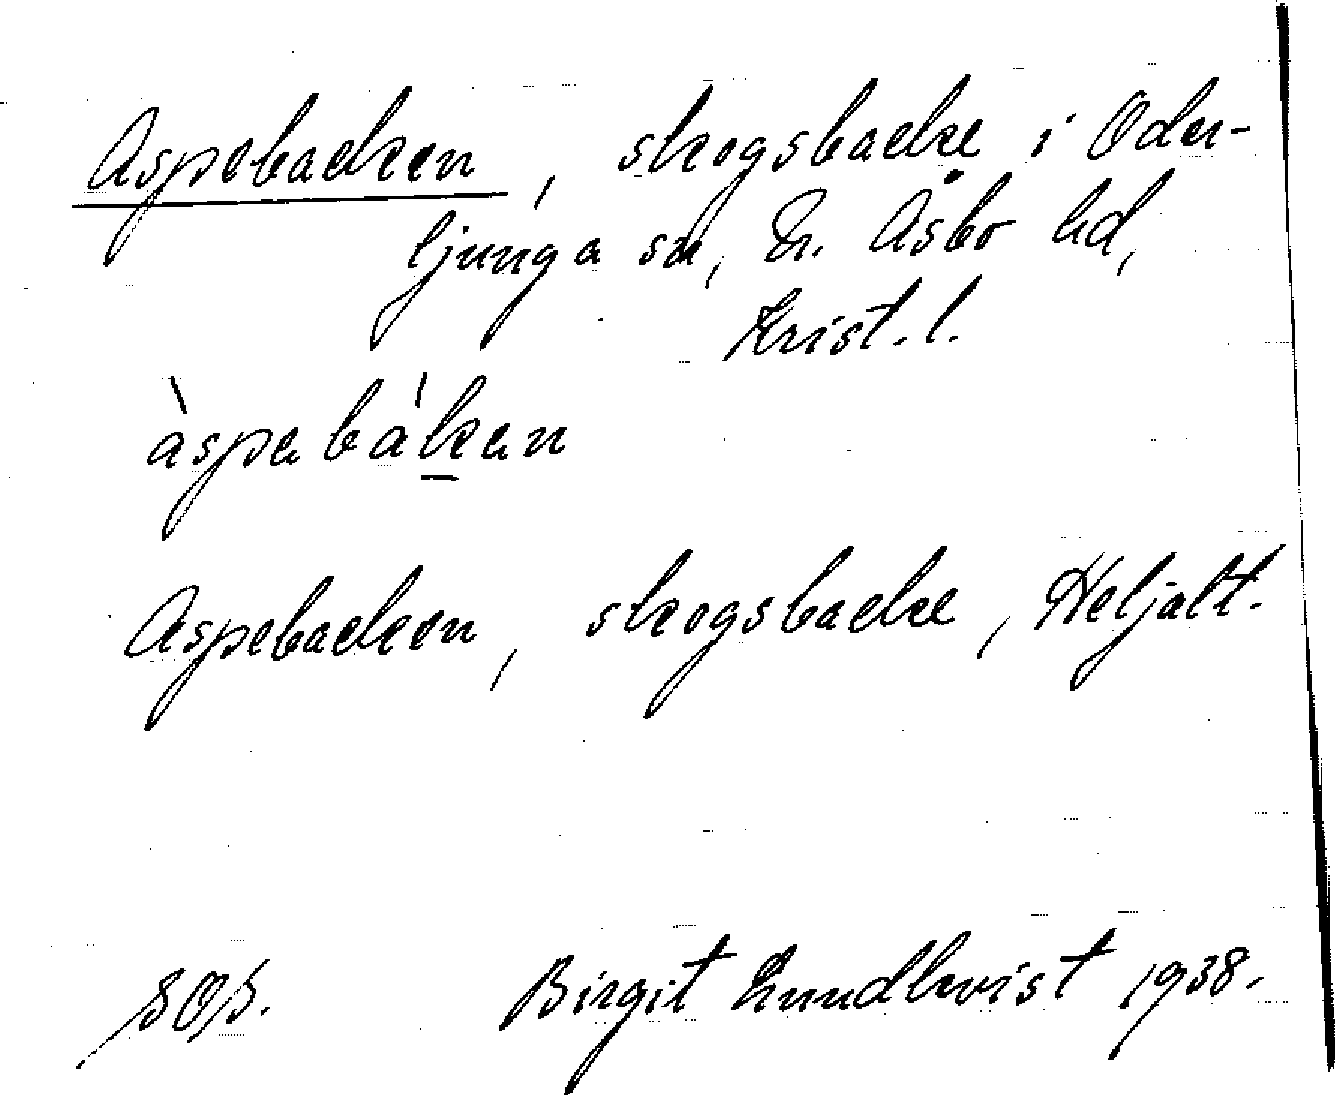 Aspebacken, skogsbacke i Oder-
ljunga sn, N. Åsbo hd,
Krist. l.
àspabákan
Aspebacken, skogsbacke, Heljalt.
SOS. Birgit Lundkvist 1938.